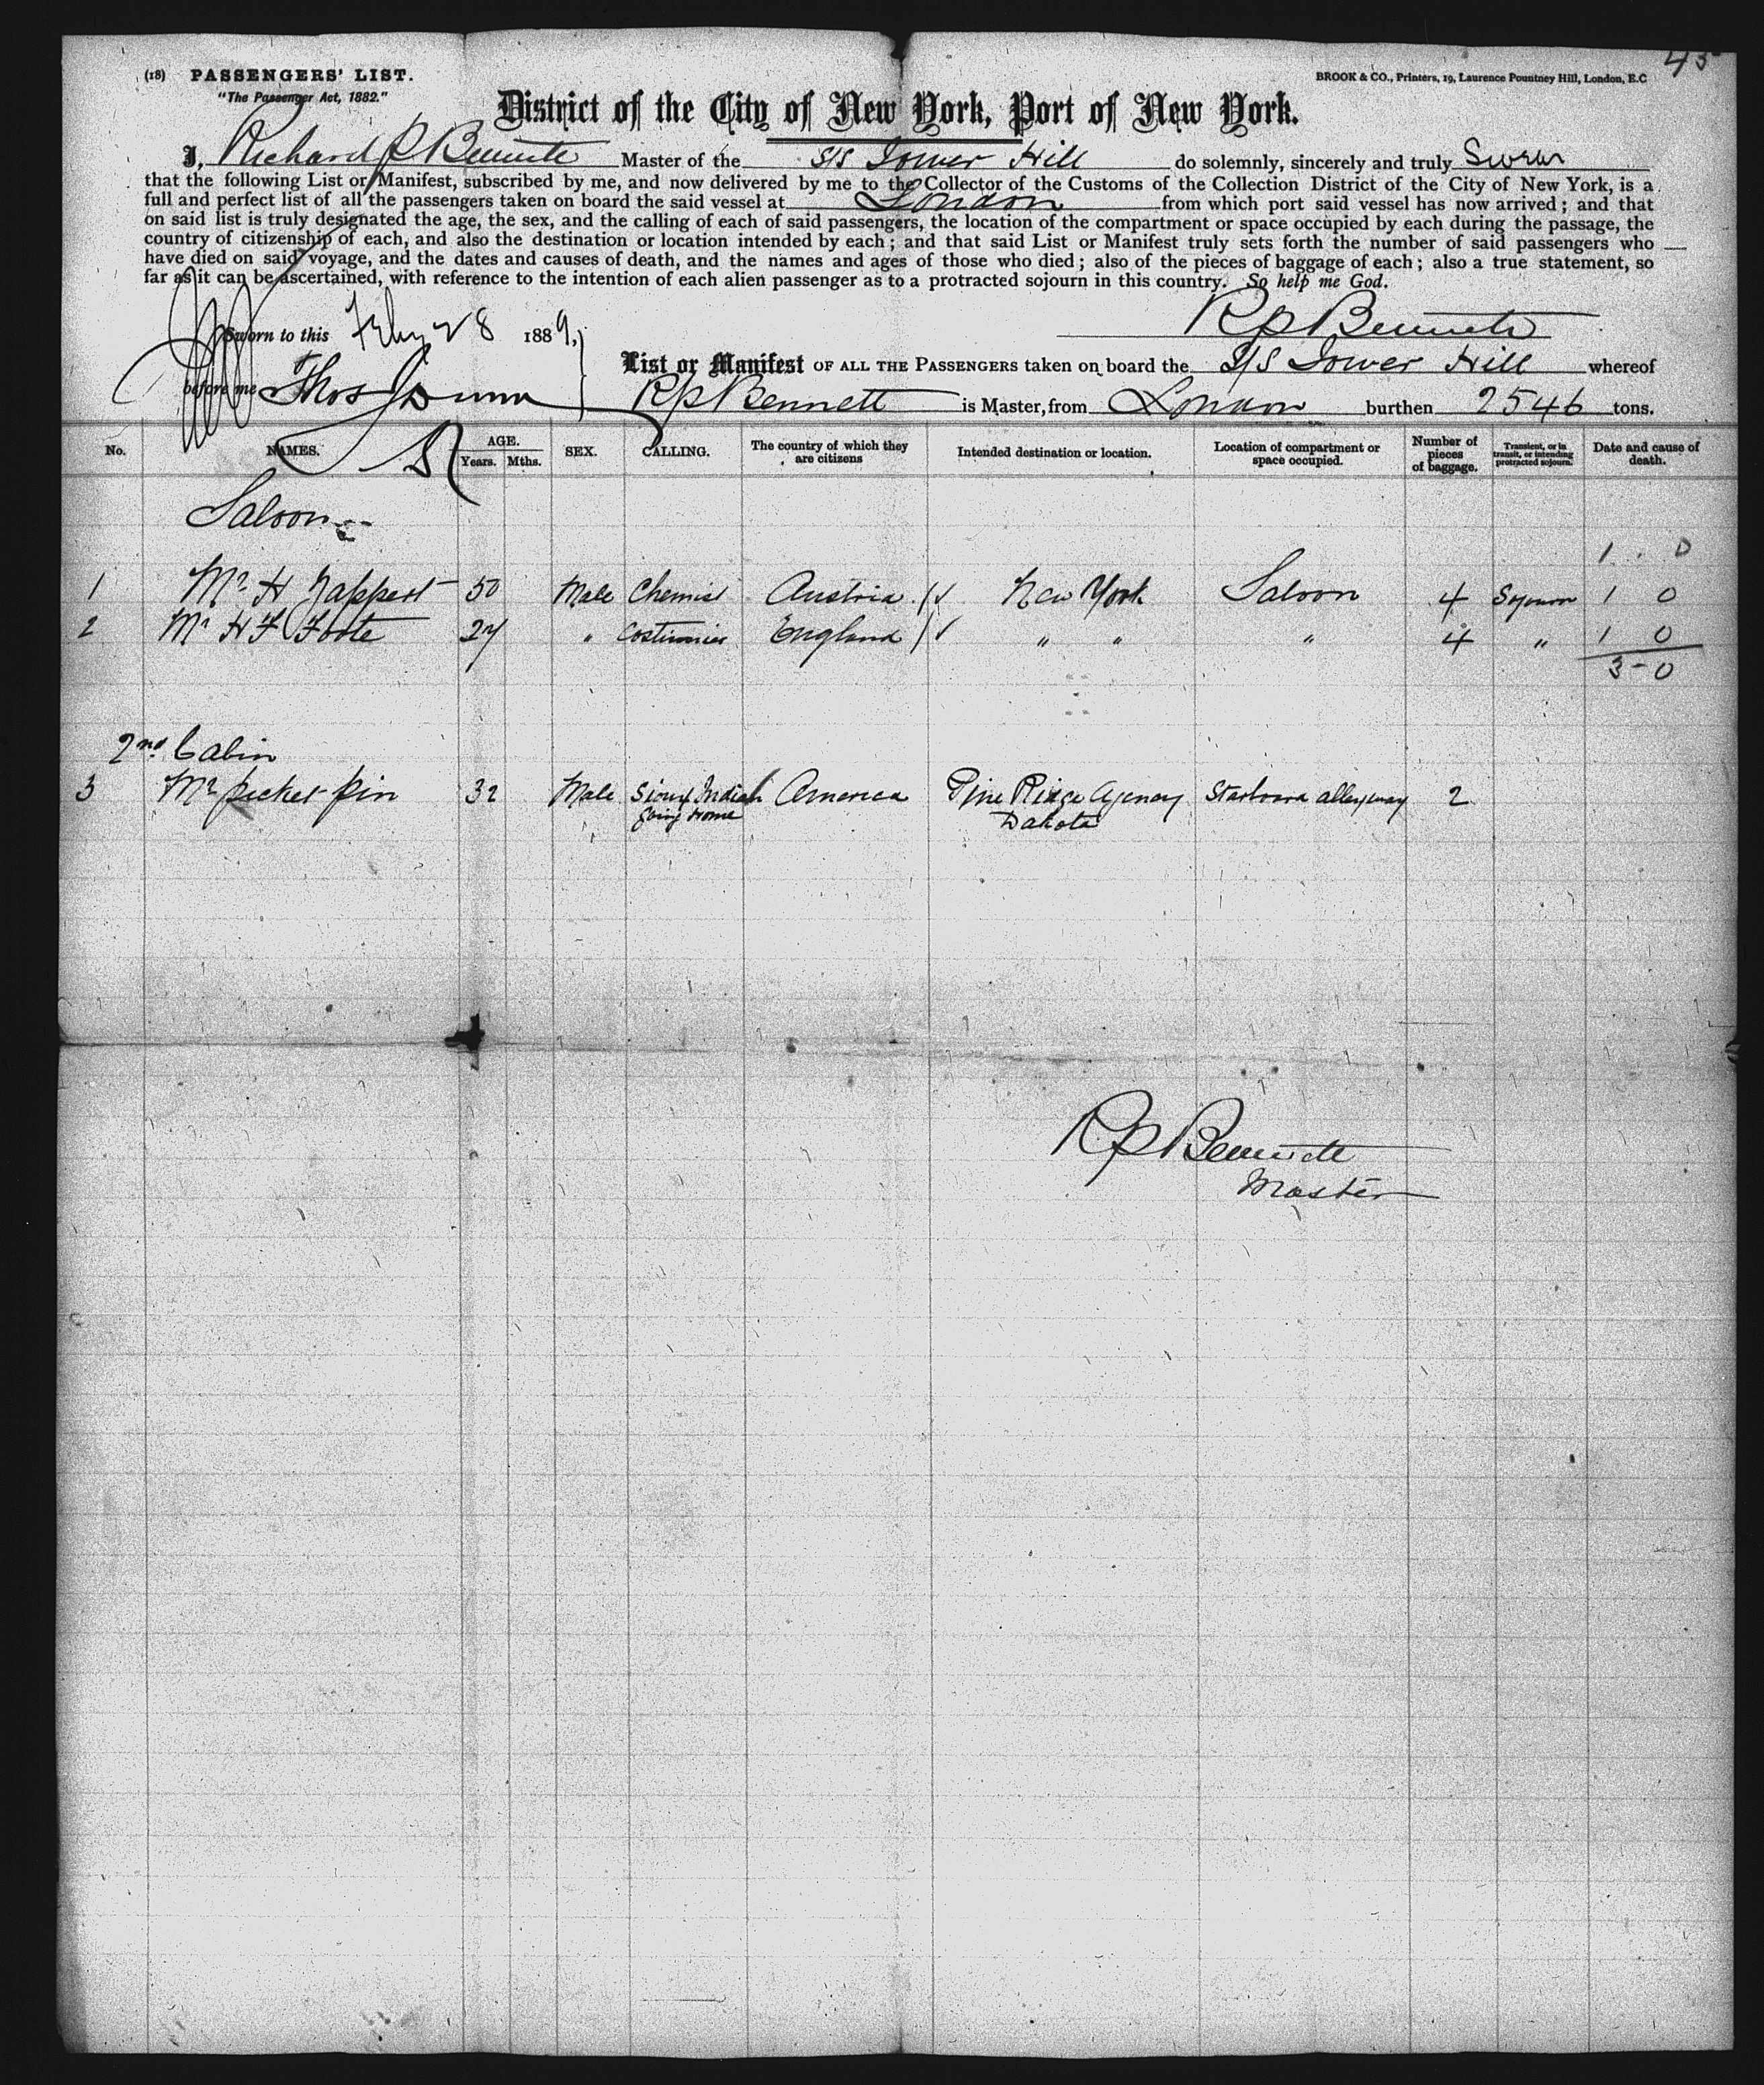 45
(18) PASSENGERS' LIST.
BROOK & CO., Printers, 19, Laurence Pountney Hill, London, E.C
"The Passenger Act, 1882."
District of the City of New York, Port of New York.
I, Richard P Bennett Master of the S/S Tower Hill do solemnly, sincerely and truly Swear
that the following List or Manifest, subscribed by me, and now delivered by me to the Collector of the Customs of the Collection District of the City of New York, is a
full and perfect list of all the passengers taken on board the said vessel at London from which port said vessel has now arrived; and that
on said list is truly designated the age, the sex, and the calling of each of said passengers, the location of the compartment or space occupied by each during the passage, the
country of citizenship of each, and also the destination or location intended by each; and that said List or Manifest truly sets forth the number of said passengers who
have died on said voyage, and the dates and causes of death, and the names and ages of those who died; also of the pieces of baggage of each; also a true statement, so
far as it can be ascertained, with reference to the intention of each alien passenger as to a protracted sojourn in this country. So help me God.
Sworn to this Feby 28 1889,
R P Bennett
before me Thos J Dunn
List or Manifest OF ALL THE PASSENGERS taken on board the S/S Tower Hill whereof
R P Bennett is Master, from London burthen 2546 tons.
No. NAMES. AGE. Years. Mths. SEX. CALLING. The country of which they are citizens Intended destination or location. Location of compartment or space occupied. Number of pieces of baggage. Transient, or in transit, or intending protracted sojourn. Date and cause of death.
Saloon
1 . 0
1 Mr H Nappert 50 Male Chemist Austria New York Saloon 4 Sojourn 1 0
2 Mr H F Foote 27 " Costumier England " " " 4 " 1 0
3-0
2nd Cabin
3 Mr Picket Pin 32 Male Sioux Indian America Pine Ridge Agency Starboard alleyway 2
going Home Dakota
R P Bennett
Master